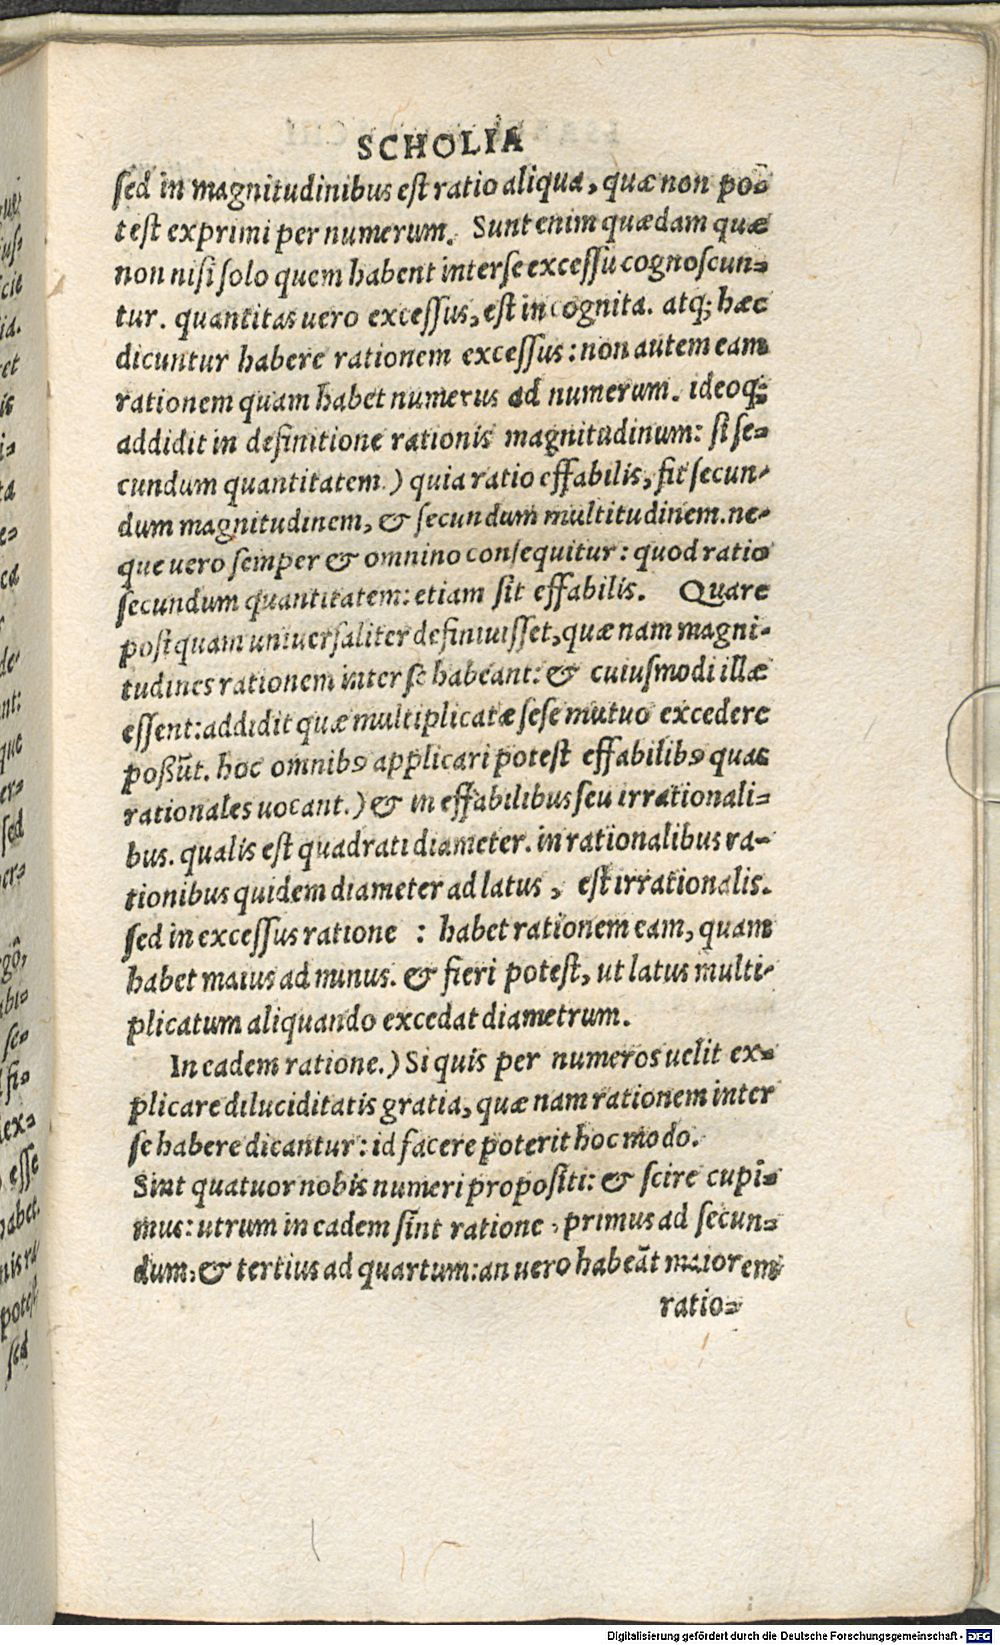 SCHOLIA
sed in magnitudinibus est ratio aliqua, quæ non po-
test exprimi per numerum. Sunt enim quædam quæ
non nisi solo quem habent inter se excessu cognoscun-
tur. quantitas uero excessus, est incognita. atq; hæc
dicuntur habere rationem excessus: non autem eam
rationem quam habet numerus ad numerum. ideoq;
addidit in definitione rationis magnitudinum: si se-
cundum quantitatem.) quia ratio effabilis, fit secun-
dum magnitudinem, & secundum multitudinem. ne-
que uero semper & omnino consequitur: quod ratio
secundum quantitatem: etiam sit effabilis. Quare
postquam uniuersaliter definiuisset, quæ nam magni-
tudines rationem inter se habeant: & cuiusmodi illæ
essent: addidit quæ multiplicatæ sese mutuo excedere
poßūt. hoc omnibꝰ applicari potest effabilibꝰ quas
rationales uocant.) & in effabilibus seu irrationali-
bus. qualis est quadrati diameter. in rationalibus ra-
tionibus quidem diameter ad latus, est irrationalis.
sed in excessus ratione : habet rationem eam, quam
habet maius ad minus. & fieri potest, ut latus multi-
plicatum aliquando excedat diametrum.
In eadem ratione.) Si quis per numeros uelit ex-
plicare diluciditatis gratia, quæ nam rationem inter
se habere dicantur: id facere poterit hoc modo.
Sint quatuor nobis numeri propositi: & scire cupi-
mus: utrum in eadem sint ratione, primus ad secun-
dum, & tertius ad quartum: an uero habeāt maiorem
ratio-
Digitalisierung gefördert durch die Deutsche Forschungsgemeinschaft - DFG